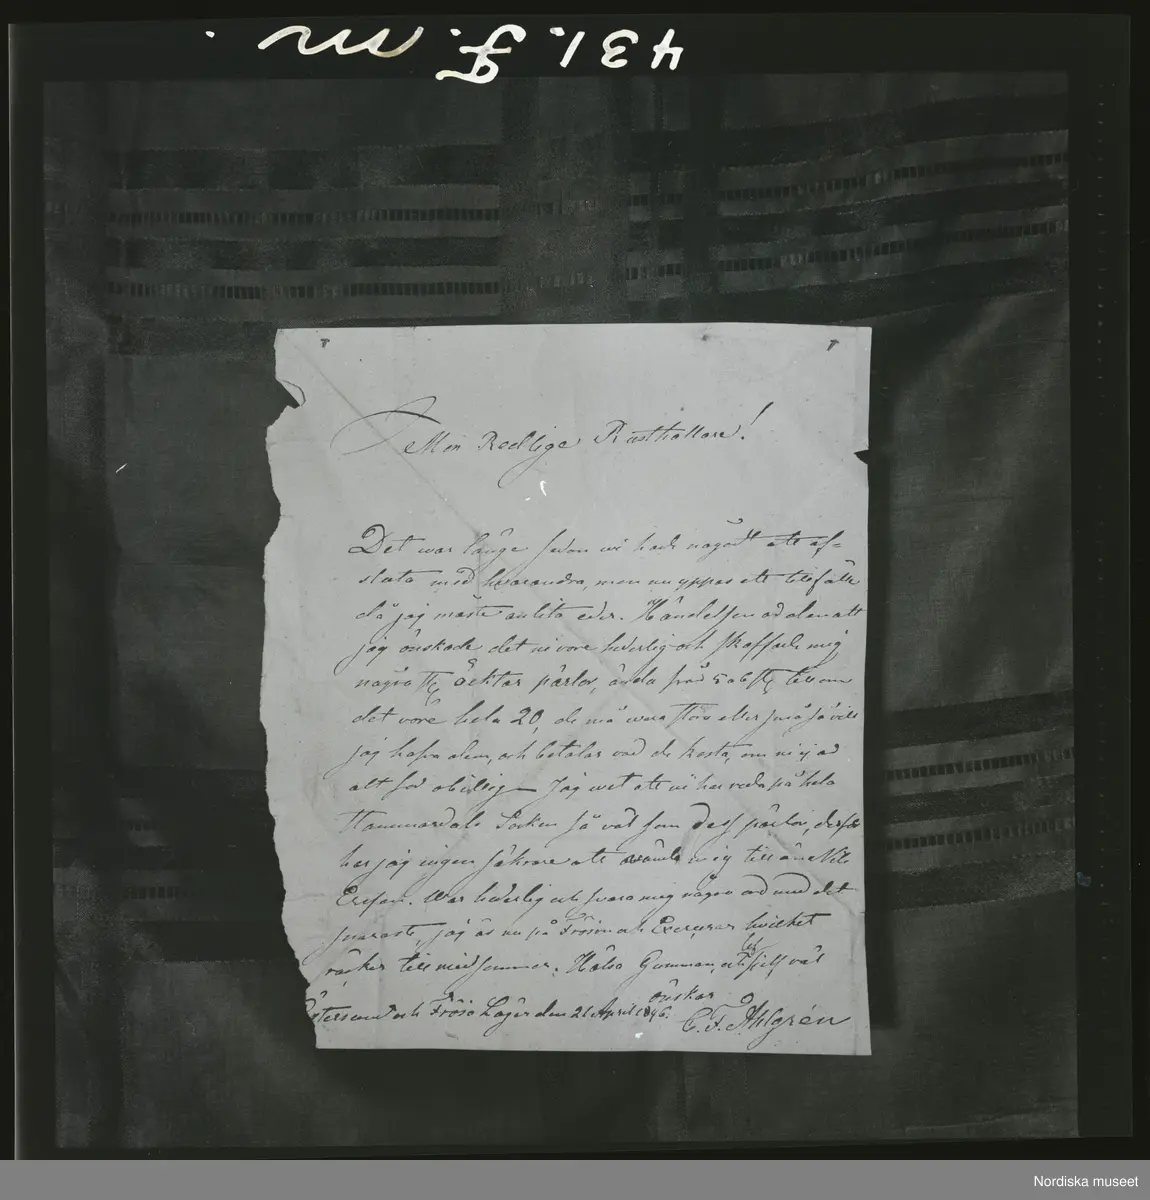 431. F. m.
Min Redlige Rusthållare!
Det war länge sedan wi hade någodt att af-
sluta med hvarandra, men nu yppas ett tillfälle
då jag måste anlita eder. Händelsen ad den att
jag önskade det ni vore hederlig och skaffade mig
några st äcktar pärlor, ända från 5 a 6 st till om
det vore hela 20, de må wara stora eller små så vill
jag hafva dem, och betalar vad de kosta, om ni ej ad
alt för obillig – Jag wet att ni har reda på hela
Hammardals Socken så väl som dess pärlor, derför
har jag ingen säkrare att wända mig till än Nils
Ersson. War hederlig och svara mig någon ord med det
snaraste, jag är nu på Frösön och Exercerar hvilket
räcker till midsommar. Hälsa Gumman, och sjelf väl
lef
önskar
Östersund och Frösö Läger den 21 April 1846.
C. F. Åhlgrén
Nordiska museet